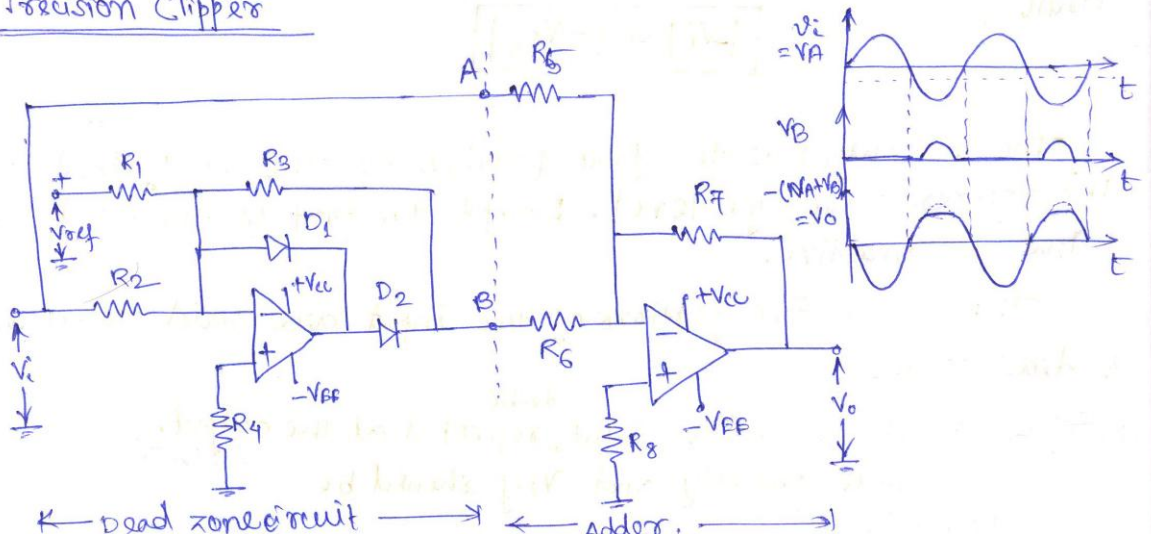 Precision Clipper
A
R5
R1
R3
+
Vref
D1
R2
+Vcc
D2
B
R6
R7
+Vcc
-
+
-VEE
R4
Vi
-
+
-VEE
R8
Vo
Dead zone circuit
Adder.
Vi
=VA
t
VB
t
-(VA+VB)
=Vo
t